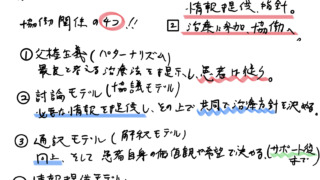 情報提供、指針。
協働関係の4つ!!
② 治療に参加、協働へ
①父権主義(パターナリズム)
最良と考える治療法を提示し、患者は従う。
②討論モデル(協議モデル)
必要な情報を提供し、その上で共同で治療方針を決める。
③通訳モデル(解釈モデル)
同上、そして患者自身の価値観や希望で決める。(サポート役まで)
情報提供モデル